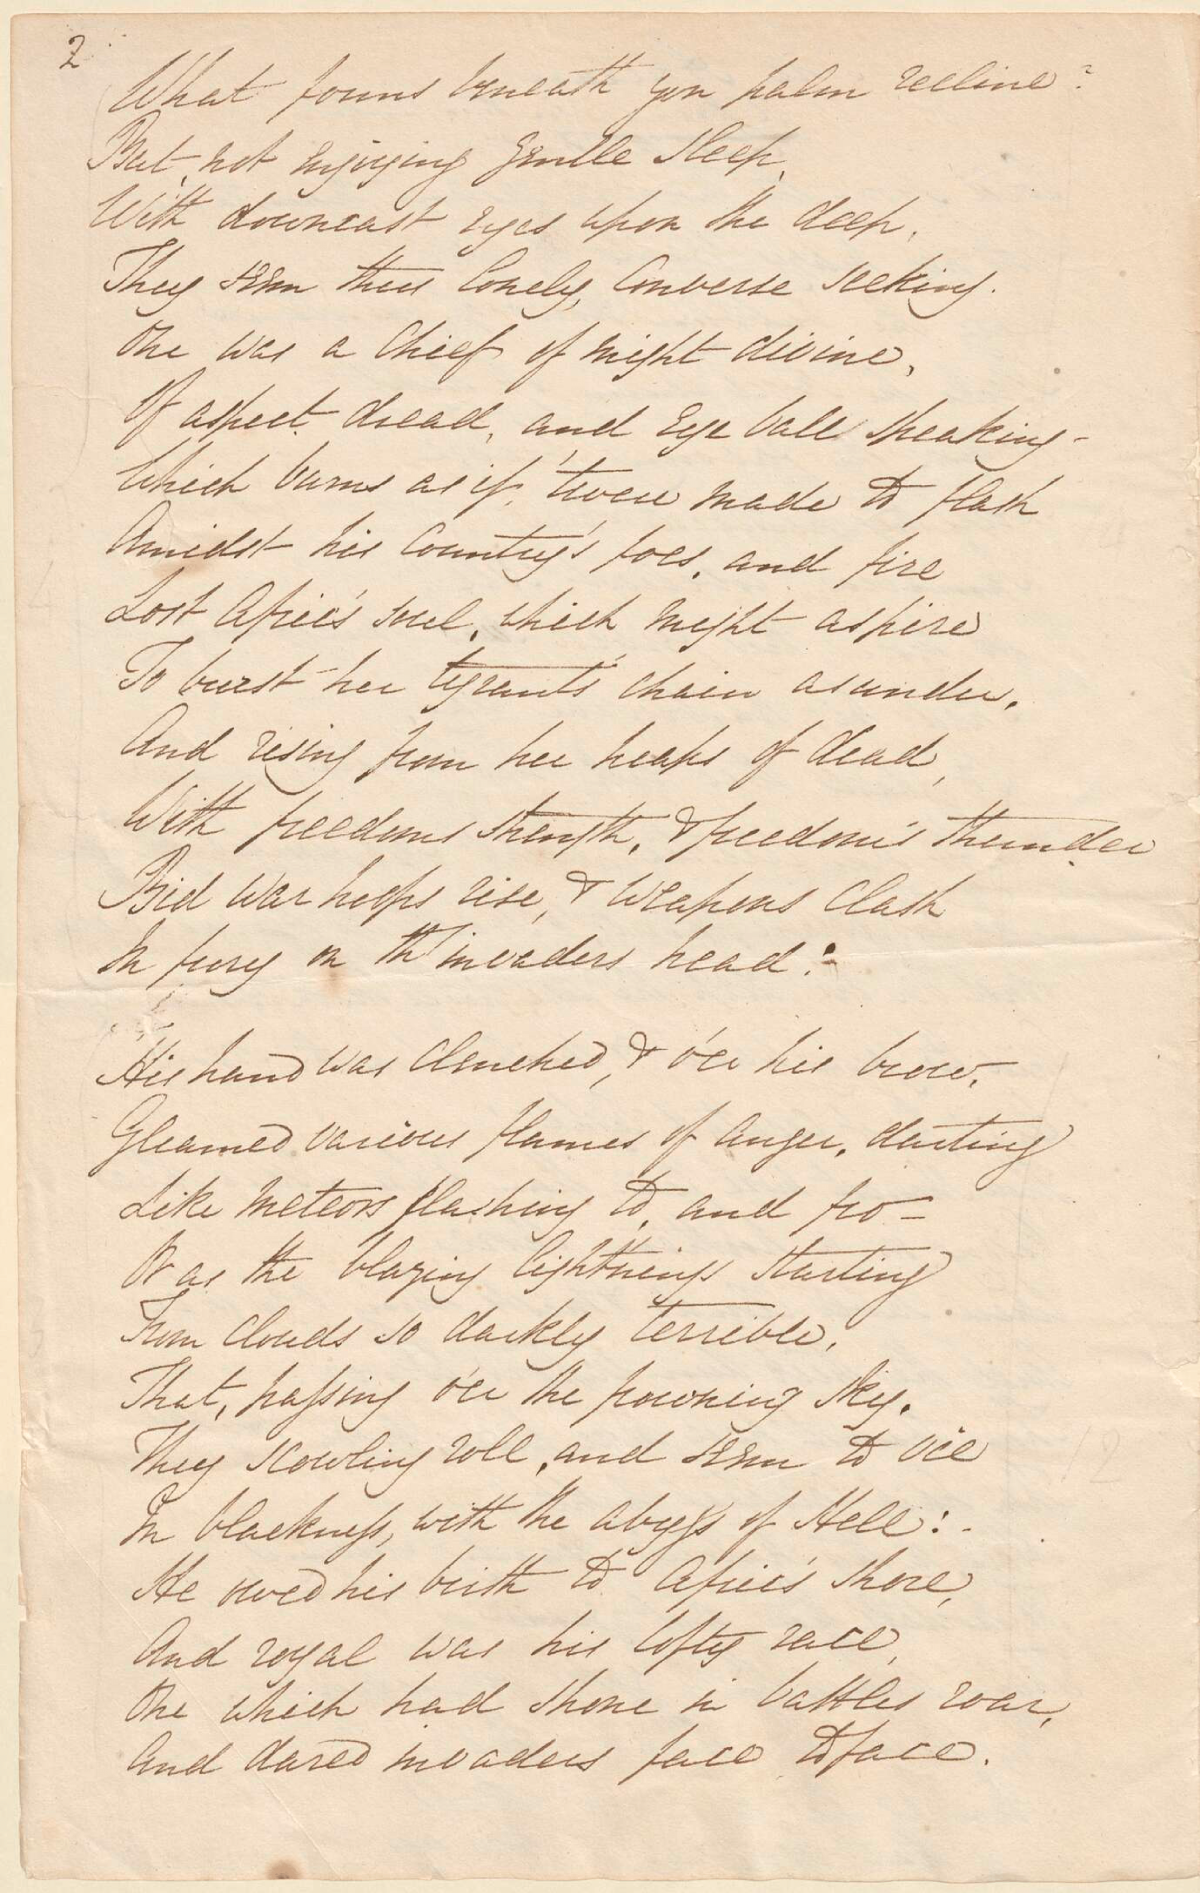 2
What forms beneath yon palm recline?
But, not enjoying gentle sleep,
With downcast eyes upon the deep,
They seem thus lonely, Converse seeking.
One was a Chief of might divine,
Of aspect dread, and Eye ball speaking-
Which burns as if 'twere made to flash
Amidst his Country's foes, and fire
Lost Afric's soul, which might aspire
To burst her tyrants' chain asunder,
And rising from her heaps of dead,
With freedoms strength, & freedom's thunder
Bid war hoops rise, & weapons Clash
In fury on th' invaders head:-
His hand was Clenched, & o'er his brow,
Gleamed various flames of anger, darting
Like Meteors flashing to, and fro-
Or as the blazing lightnings starting
From Clouds so darkly terrible,
That, passing o'er the frowning sky,
They scowling roll, and seem to vie
In blackness, with the abyss of Hell:-
He owed his birth to Afric's shore,
And royal was his lofty race,
One which had shone in battles roar,
And dared invaders face to face.
12